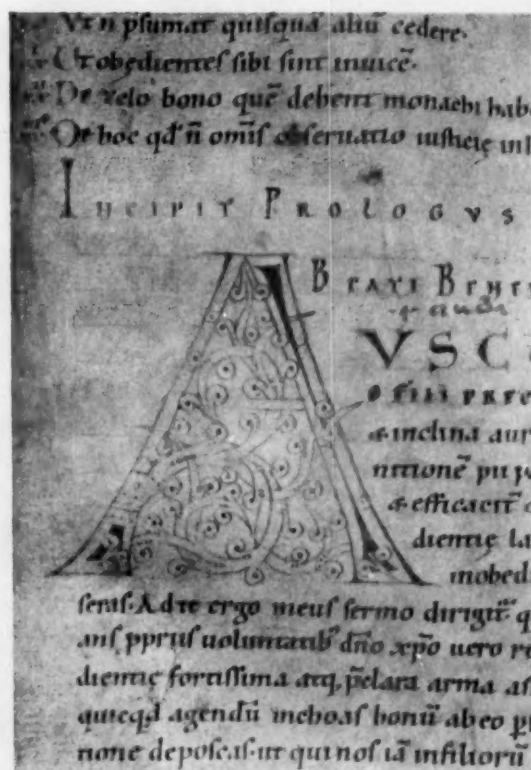 Vt n p̄sumat quisquā aliū cedere.
Ut obedientes sibi sint inuicē.
De zelo bono quē debent monachi hab
De hoc qd̄ n̄ om̄is obseruatio iusticię
INCIPIT PROLOGVS
BEATI BENE
A VSC
O FILI PRE
& inclina aur
nitionē pii p
& efficacit̄
dientię la
inobed
seras. Ad te ergo meus sermo dirigit̄ q
ans pprus uoluntatib dño xp̄o uero
dientię fortissima atq; p̄clara arma as
quicqd agendū inchoas bonū ab eo
tione deposcas. ut qui nos iā in filiorū